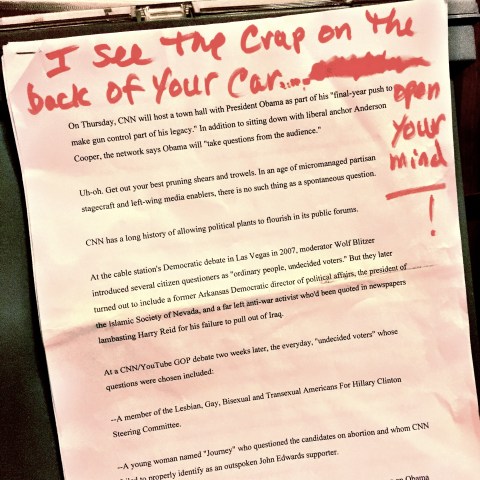 I see the Crap on the
back of your Car....
open
your
mind
!
On Thursday, CNN will host a town hall with President Obama as part of his "final-year push to
make gun control part of his legacy." In addition to sitting down with liberal anchor Anderson
Cooper, the network says Obama will "take questions from the audience."
Uh-oh. Get out your best pruning shears and trowels. In an age of micromanaged partisan
stagecraft and left-wing media enablers, there is no such thing as a spontaneous question.
CNN has a long history of allowing political plants to flourish in its public forums.
At the cable station's Democratic debate in Las Vegas in 2007, moderator Wolf Blitzer
introduced several citizen questioners as "ordinary people, undecided voters." But they later
turned out to include a former Arkansas Democratic director of political affairs, the president of
the Islamic Society of Nevada, and a far left anti-war activist who'd been quoted in newspapers
lambasting Harry Reid for his failure to pull out of Iraq.
At a CNN/YouTube GOP debate two weeks later, the everyday, "undecided voters" whose
questions were chosen included:
--A member of the Lesbian, Gay, Bisexual and Transexual Americans For Hillary Clinton
Steering Committee.
--A young woman named "Journey" who questioned the candidates on abortion and whom CNN
failed to properly identify as an outspoken John Edwards supporter.
on Obama